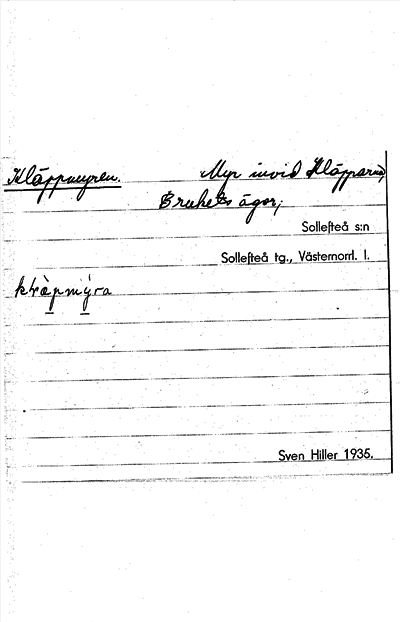 Kläppmyren. Myr invid Kläpparna,
Brukets ägor;
Sollefteå s:n
Sollefteå tg., Västernorrl. l.
klæpmy̆ra
Sven Hiller 1935.